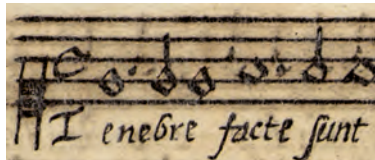 I enebre facte sunt